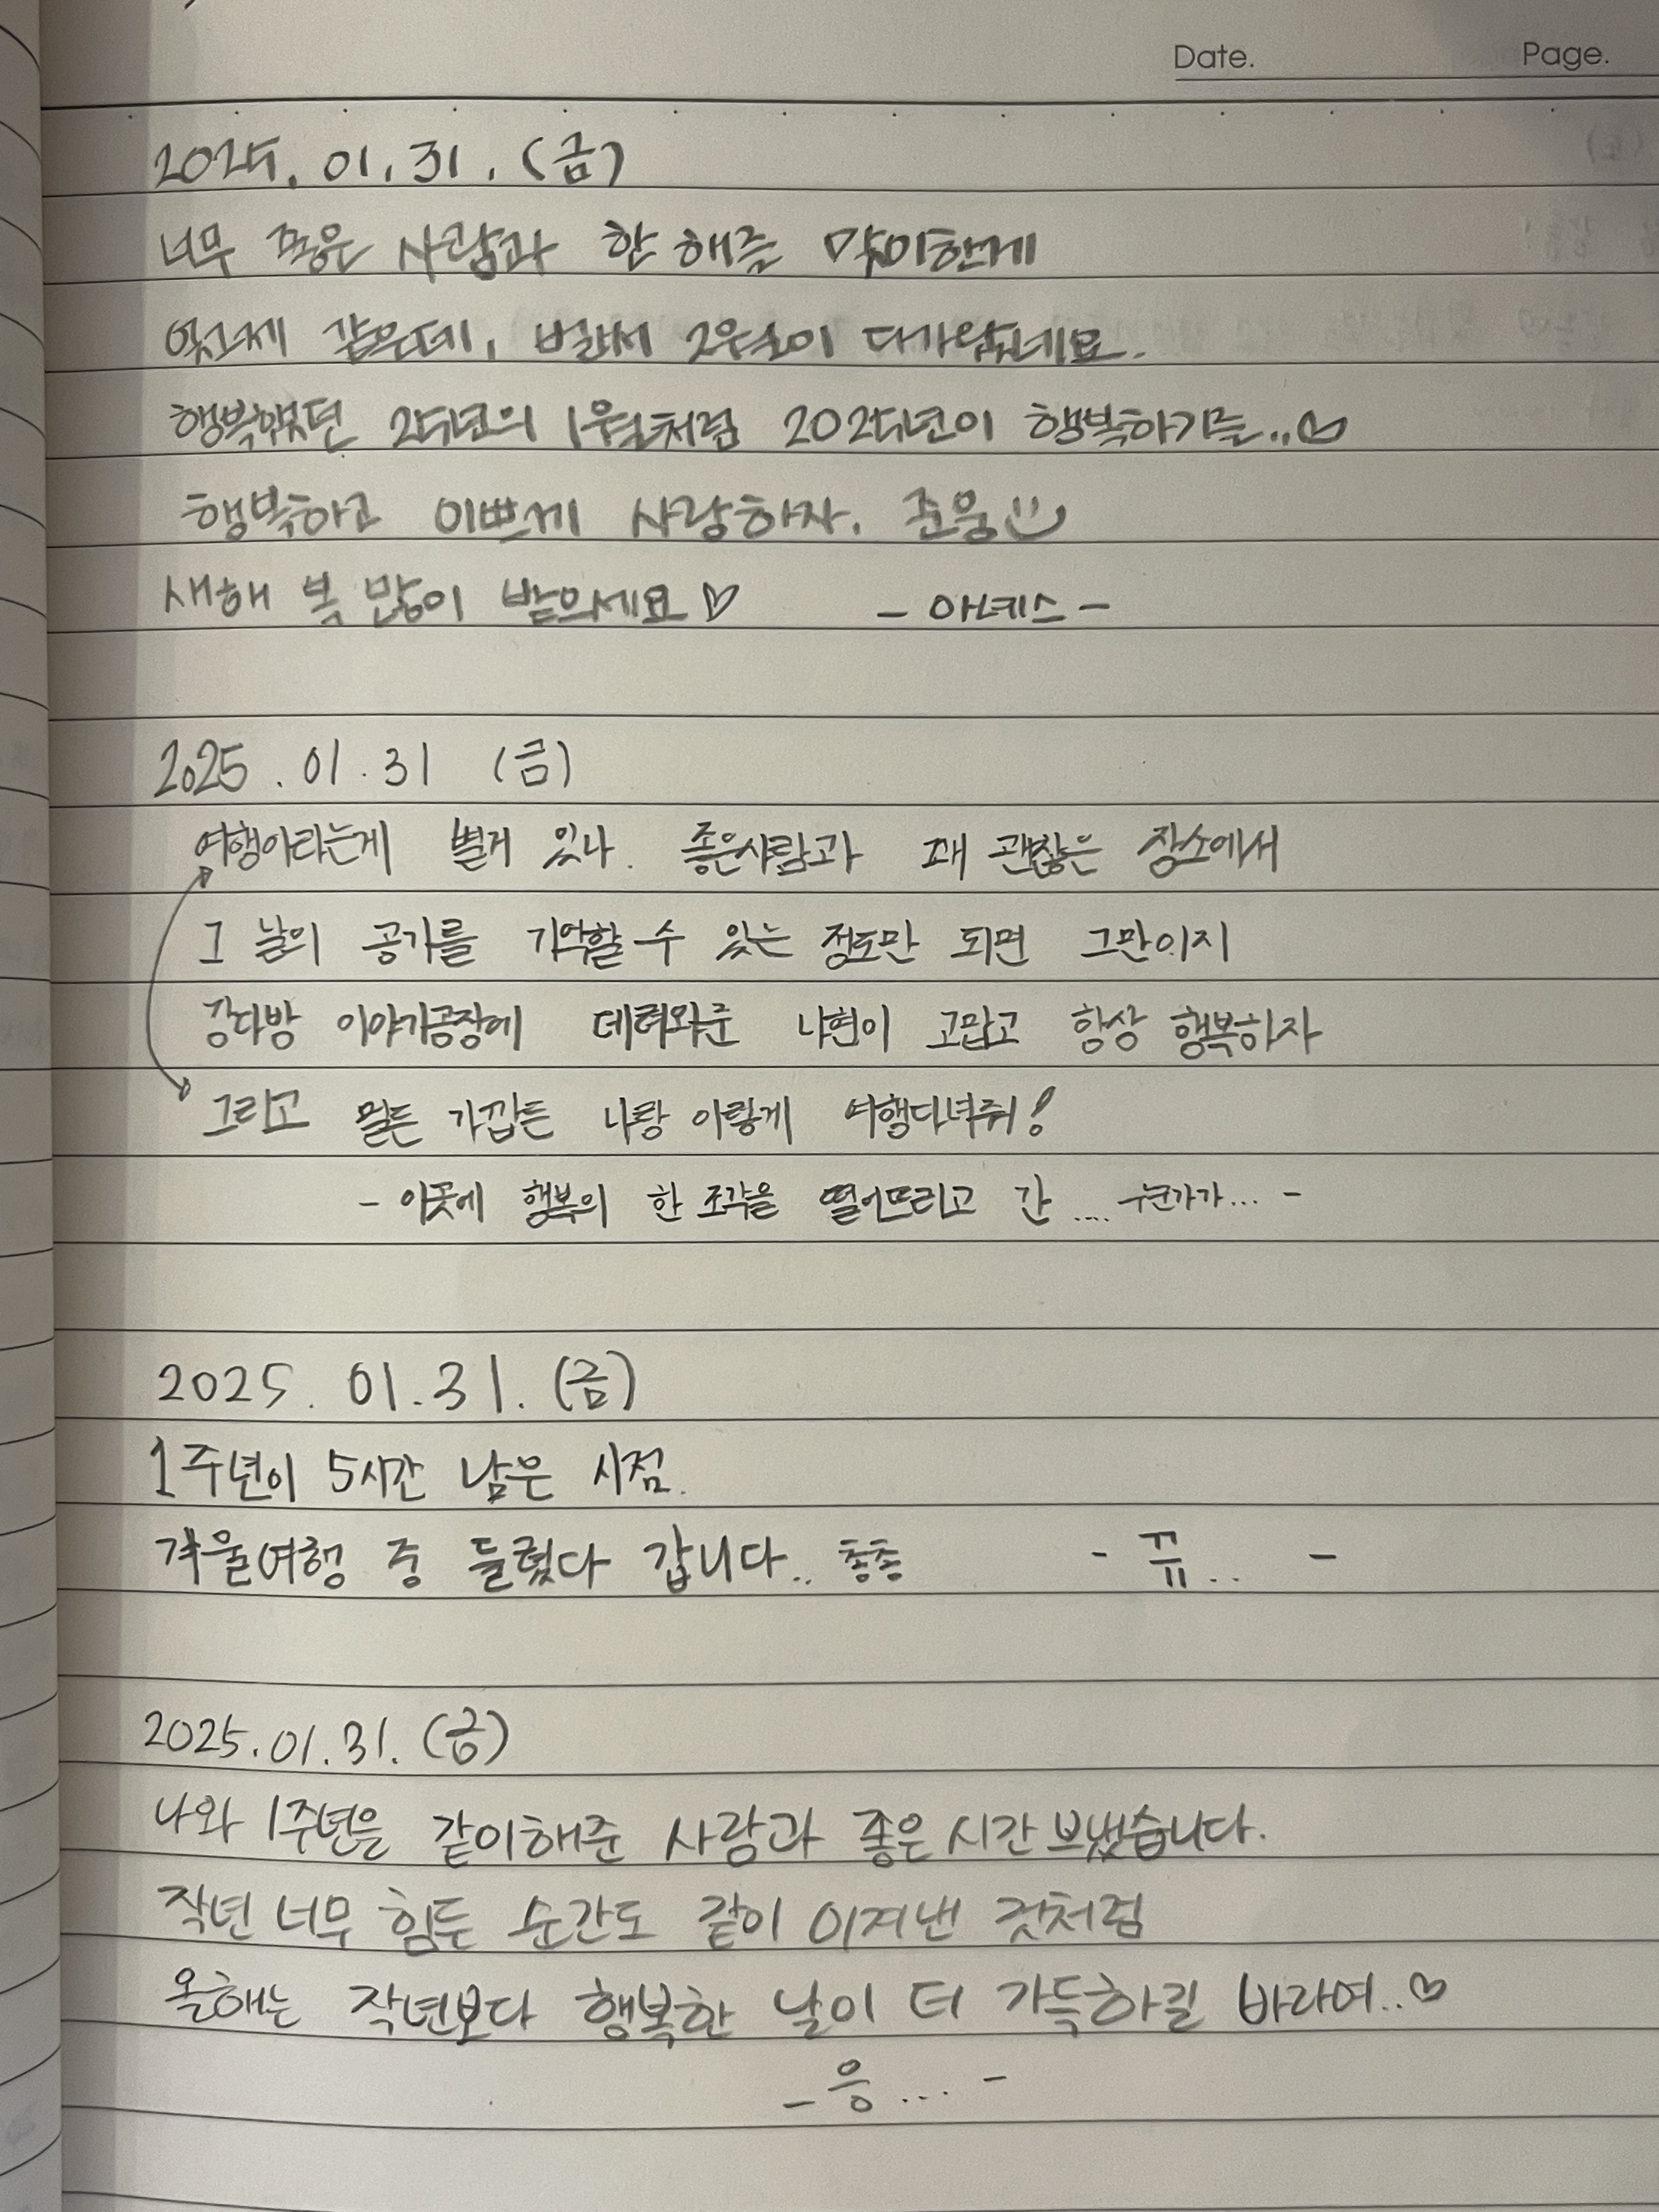 Date. Page.
2025. 01. 31. (금)
너무 좋은 사람과 한 해를 맞이한게
엊그제 같은데, 벌써 2월이 다가왔네요.
행복했던 25년의 1월처럼 2025년이 행복하기를..♡
행복하고 이쁘게 사랑하자. 준웅
새해 복 많이 받으세요♡ - 아녜스 -
2025. 01. 31 (금)
여행이라는게 별게 있나. 좋은사람과 꽤 괜찮은 장소에서
그 날의 공기를 기억할 수 있는 정도만 되면 그만이지
강다방 이야기공장에 데려와준 나현이 고맙고 항상 행복하자
그리고 멀든 가깝든 나랑 이렇게 여행다녀줘!
- 이곳에 행복의 한 조각을 떨어뜨리고 간 .... 누군가가... -
2025. 01. 31. (금)
1주년이 5시간 남은 시점.
겨울여행 중 들렸다 갑니다.. 총총 - 뀨.. -
2025. 01. 31. (금)
나와 1주년을 같이해준 사람과 좋은 시간 보냈습니다.
작년 너무 힘든 순간도 같이 이겨낸 것처럼
올해는 작년보다 행복한 날이 더 가득하길 바라여..♡
- 응... -